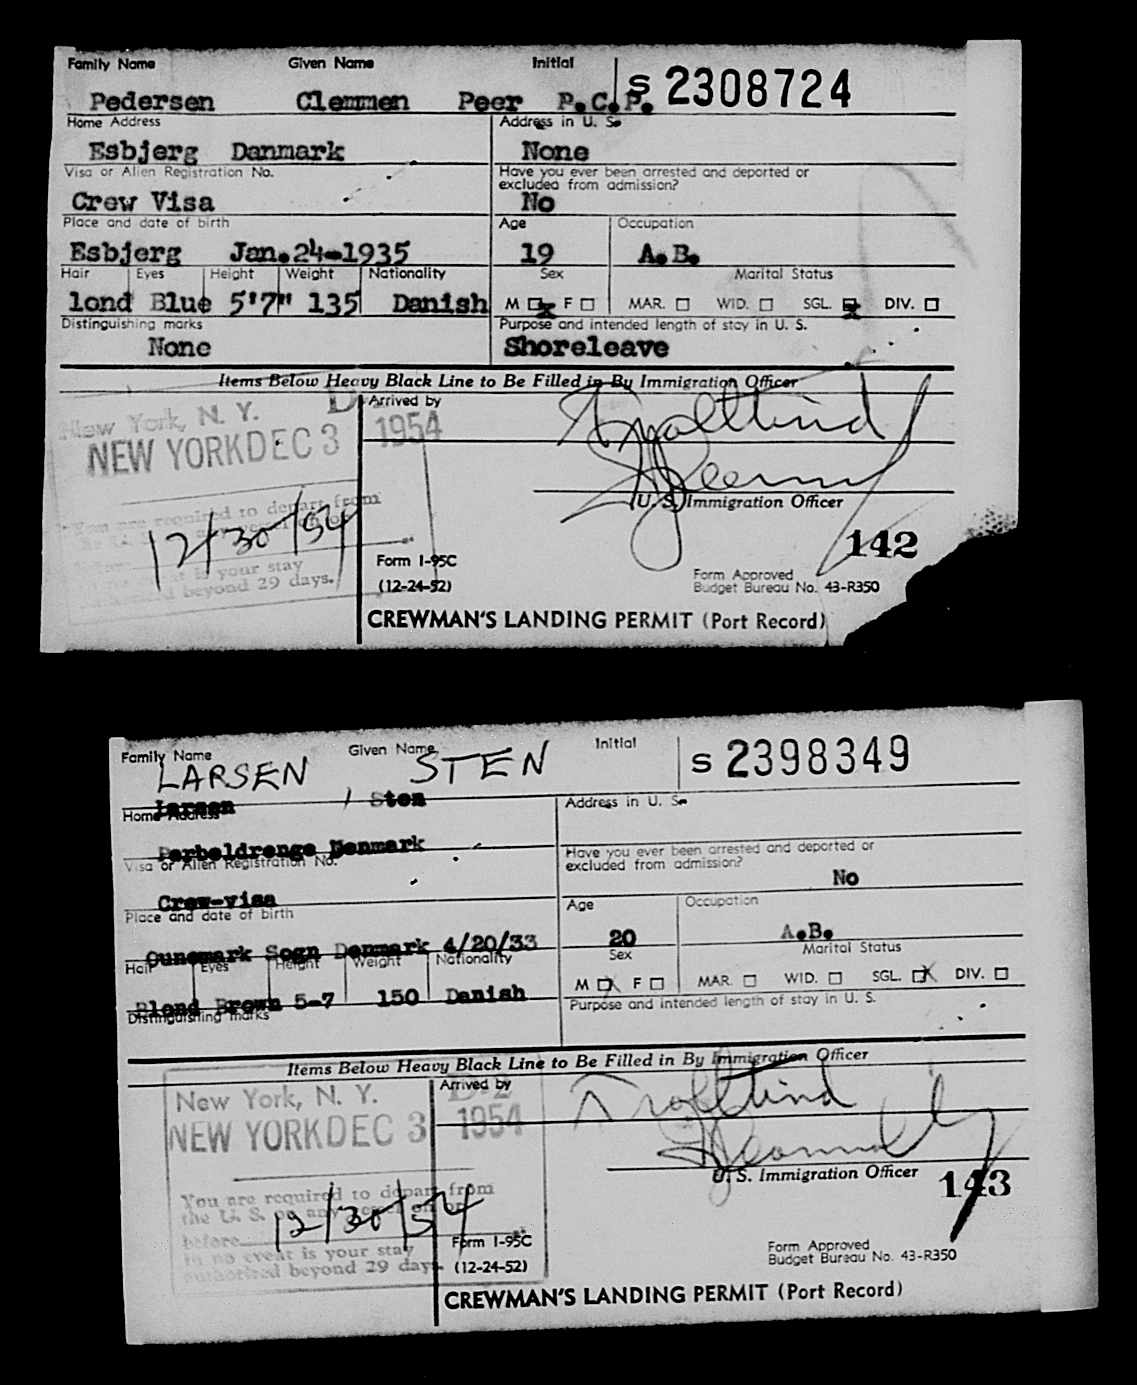 Family Name Given Name Initial
S 2308724
Pedersen Clemmen Peer P.C.P.
Home Address Address in U. S.
Esbjerg Danmark None
Visa or Alien Registration No. Have you ever been arrested and deported or
excluded from admission?
Crew Visa No
Place and date of birth Age Occupation
Esbjerg Jan.24-1935 19 A.B.
Hair Eyes Height Weight Nationality Sex Marital Status
lond Blue 5'7" 135 Danish M x F MAR. WID. SGL. x DIV.
Distinguishing marks Purpose and intended length of stay in U. S.
None Shoreleave
Items Below Heavy Black Line to Be Filled in By Immigration Officer
Arrived by
New York, N. Y.
NEW YORK DEC 3 1954
You are required to depart from
12/30/54
is your stay
beyond 29 days.
U. S. Immigration Officer
142
Form I-95C
(12-24-52)
Form Approved
Budget Bureau No. 43-R350
CREWMAN'S LANDING PERMIT (Port Record)
Family Name Given Name Initial
S 2398349
LARSEN STEN
Larsen Sten
Home Address Address in U. S.
Denmark
Visa or Alien Registration No. Have you ever been arrested and deported or
excluded from admission?
Crew-visa No
Place and date of birth Age Occupation
Sogn Denmark 4/20/33 20 A.B.
Hair Eyes Height Weight Nationality Sex Marital Status
Blond Brown 5-7 150 Danish M X F MAR. WID. SGL. X DIV.
Distinguishing marks Purpose and intended length of stay in U. S.
Items Below Heavy Black Line to Be Filled in By Immigration Officer
Arrived by
D-2
New York, N. Y.
NEW YORK DEC 3 1954
You are required to depart from
the U. S. on any vessel on or
before 12/30/54
in no event is your stay
authorized beyond 29 days.
U. S. Immigration Officer
143
Form I-95C
(12-24-52)
Form Approved
Budget Bureau No. 43-R350
CREWMAN'S LANDING PERMIT (Port Record)